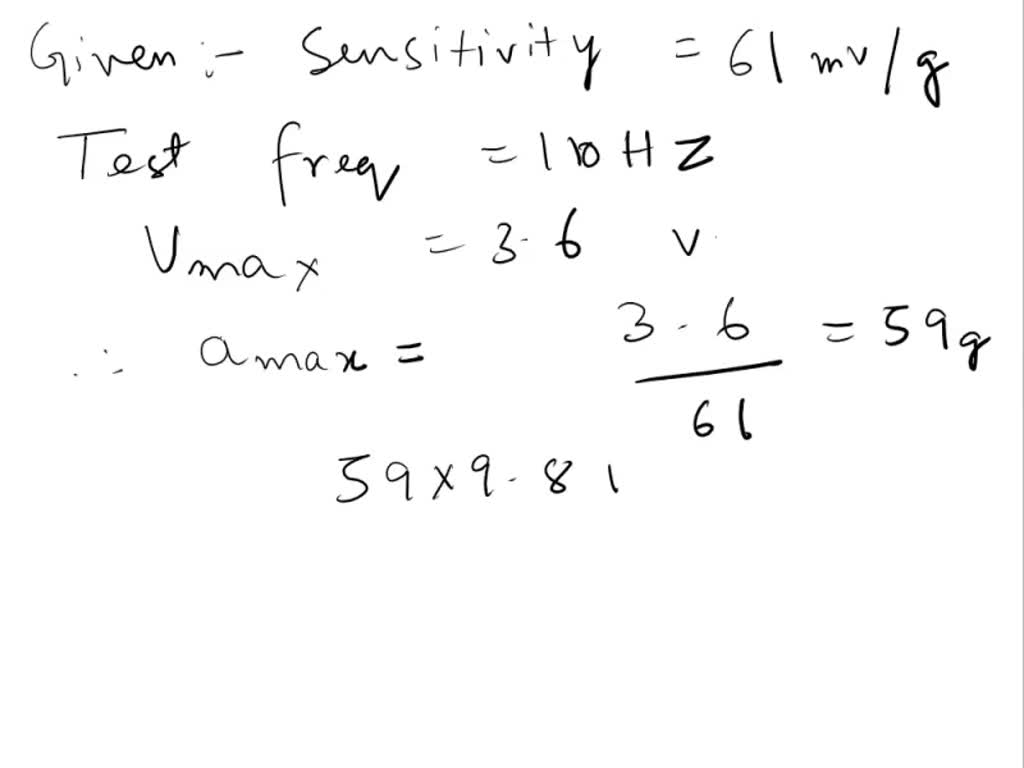 Given :- Sensitivity = 61 mv/g
Test freq = 110 HZ
Vmax = 3.6 v
∴ amax = 3.6 / 61 = 59g
59×9.81